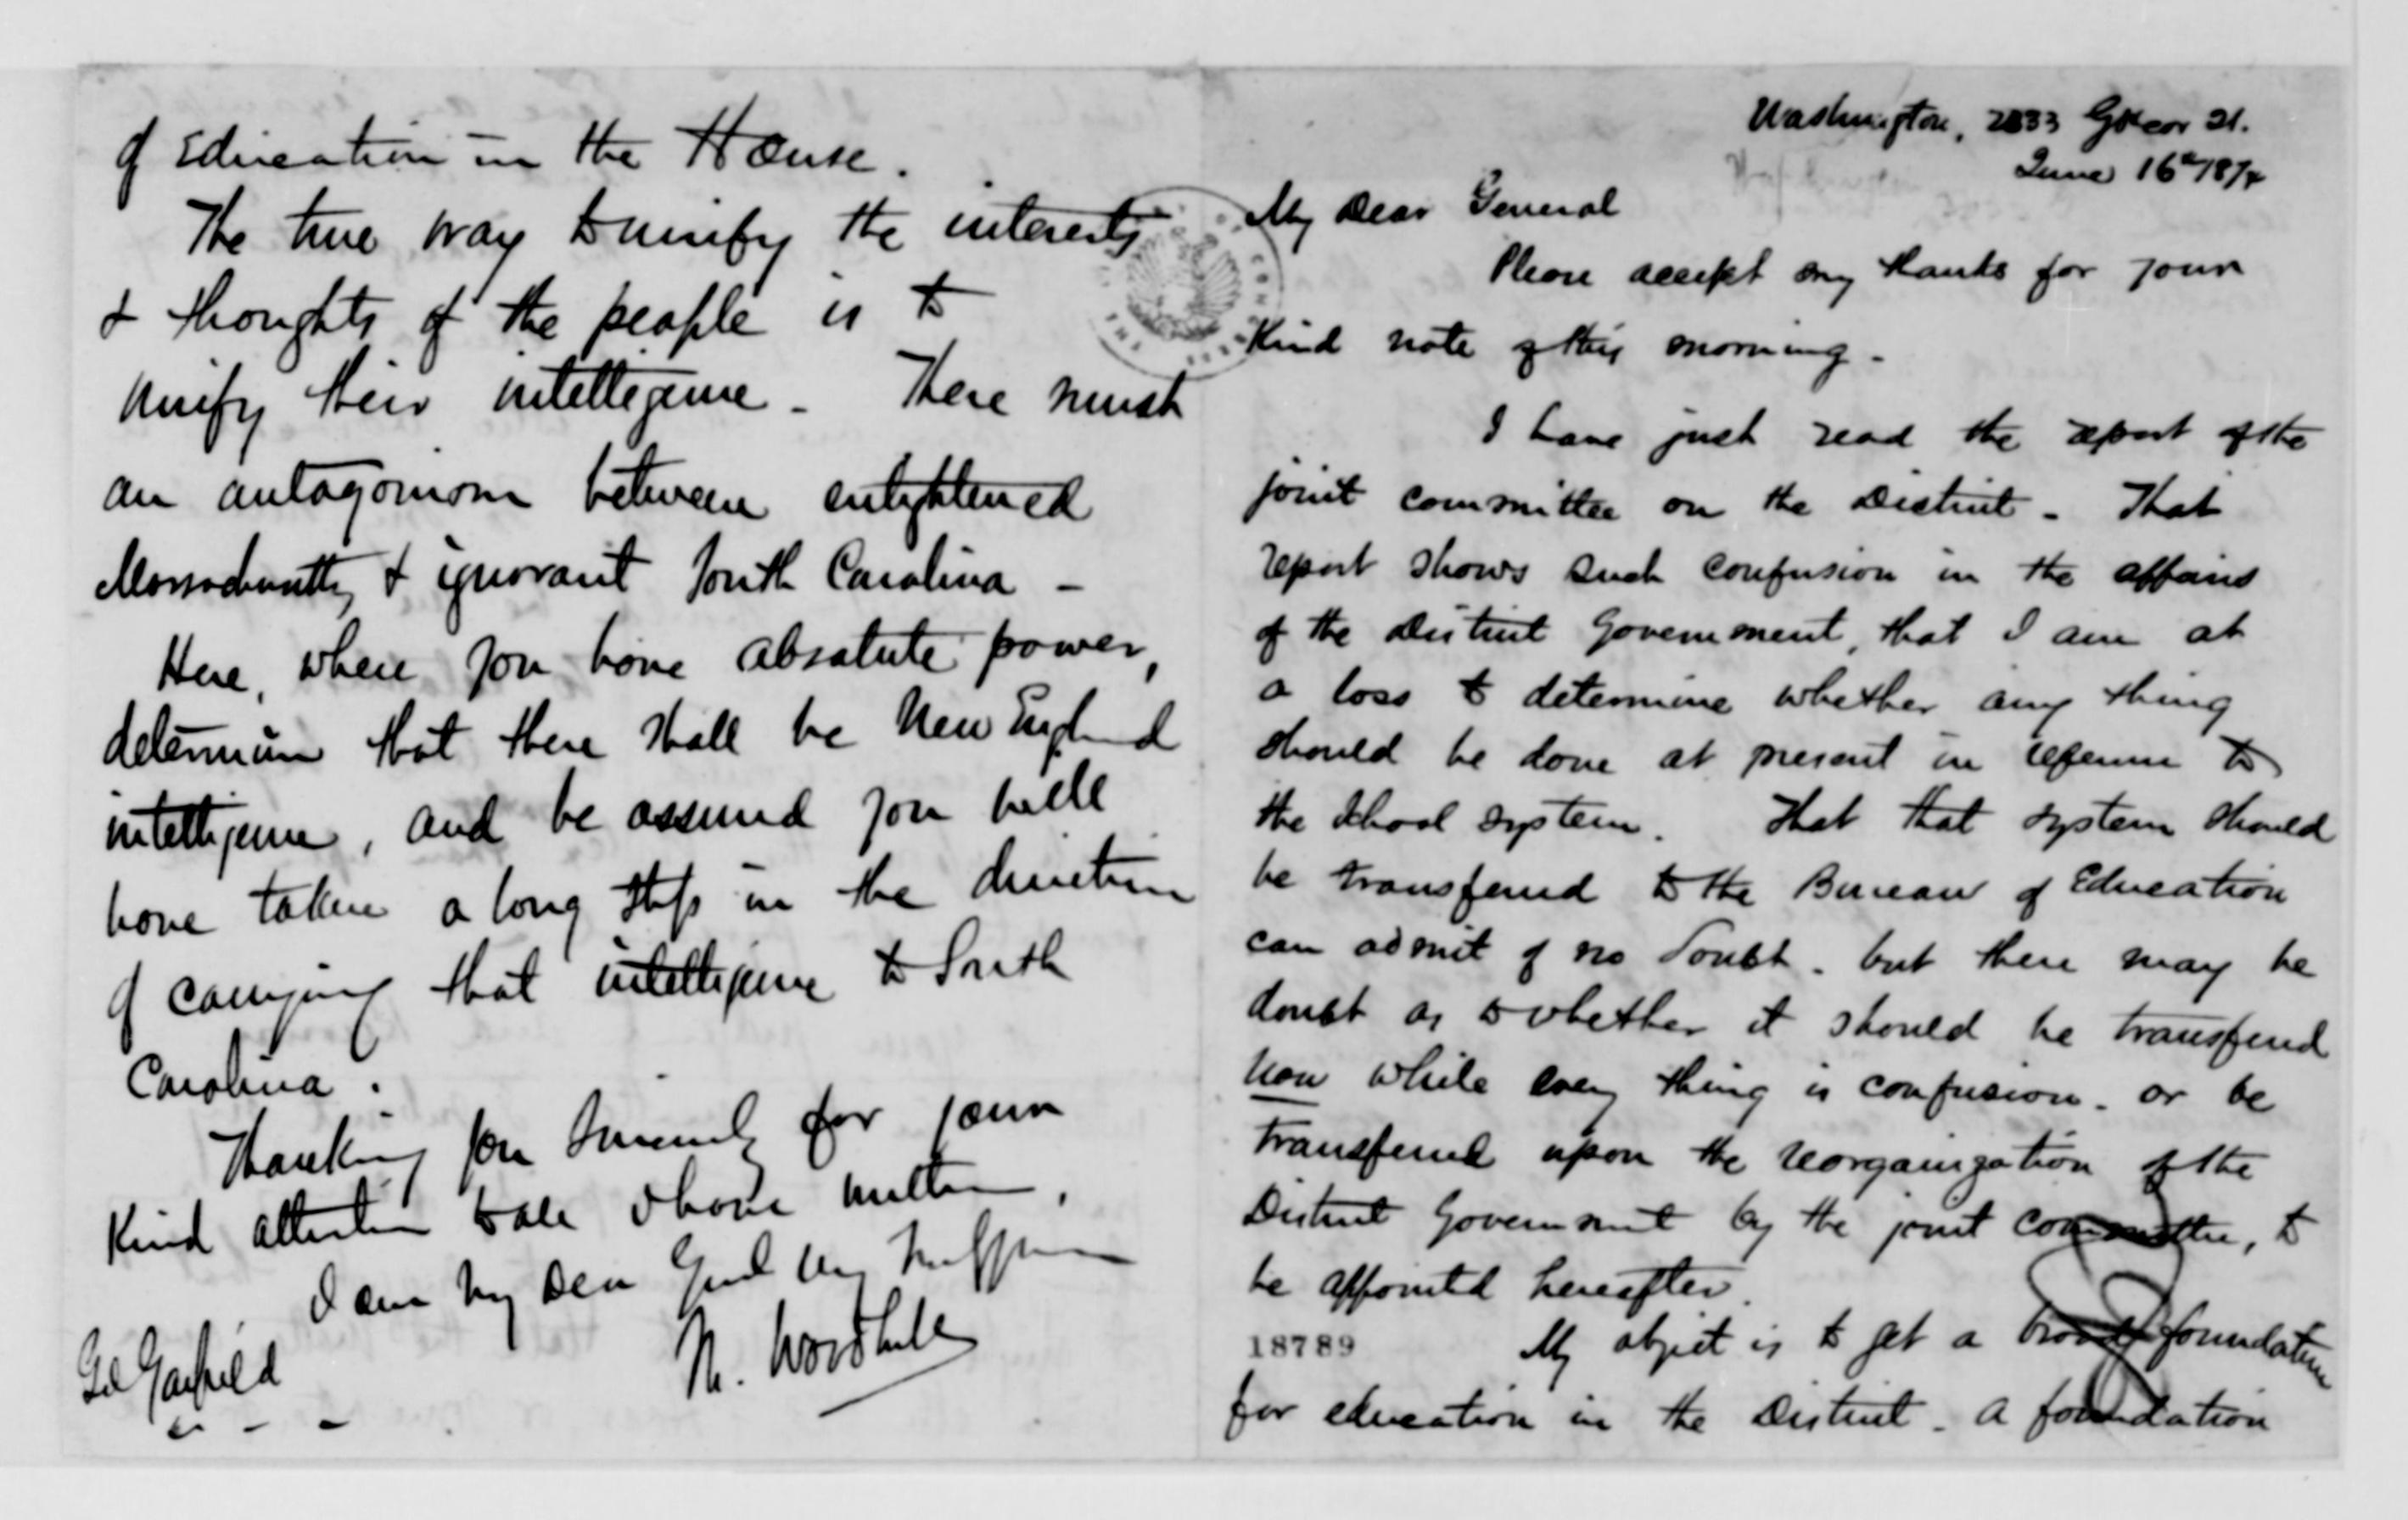 Washington, 2833 St.
June 16th 1874
My Dear General
Please accept my thanks for your
Kind note of this morning -
I have just read the report of the
joint committee on the District - That
report shows such confusion in the affairs
of the District Government, that I am at
a loss to determine whether any thing
should be done at present in reference to
the school system. That that system should
be transferred to the Bureau of Education
can admit of no doubt. but there may be
doubt as to whether it should be transferred
now while every thing is confusion. or be
transferred upon the reorganization of the
District Government by the joint committee, to
be appointed hereafter.
18789 My object is to get a broad foundation
for education in the District - a foundation
of Education in the House.
The true way to unify the interests
& thoughts of the people is to
unify their intelligence - There must
an antagonism between enlightened
Massachusetts & ignorant South Carolina -
Here, where you have absolute power,
determine that there shall be New England
intelligence, and be assured you will
have taken a long step in the direction
of carrying that intelligence to South
Carolina.
Thanking you sincerely for your
Kind attention to all I have written,
I am my Dear Genl Very
Gel Garfield